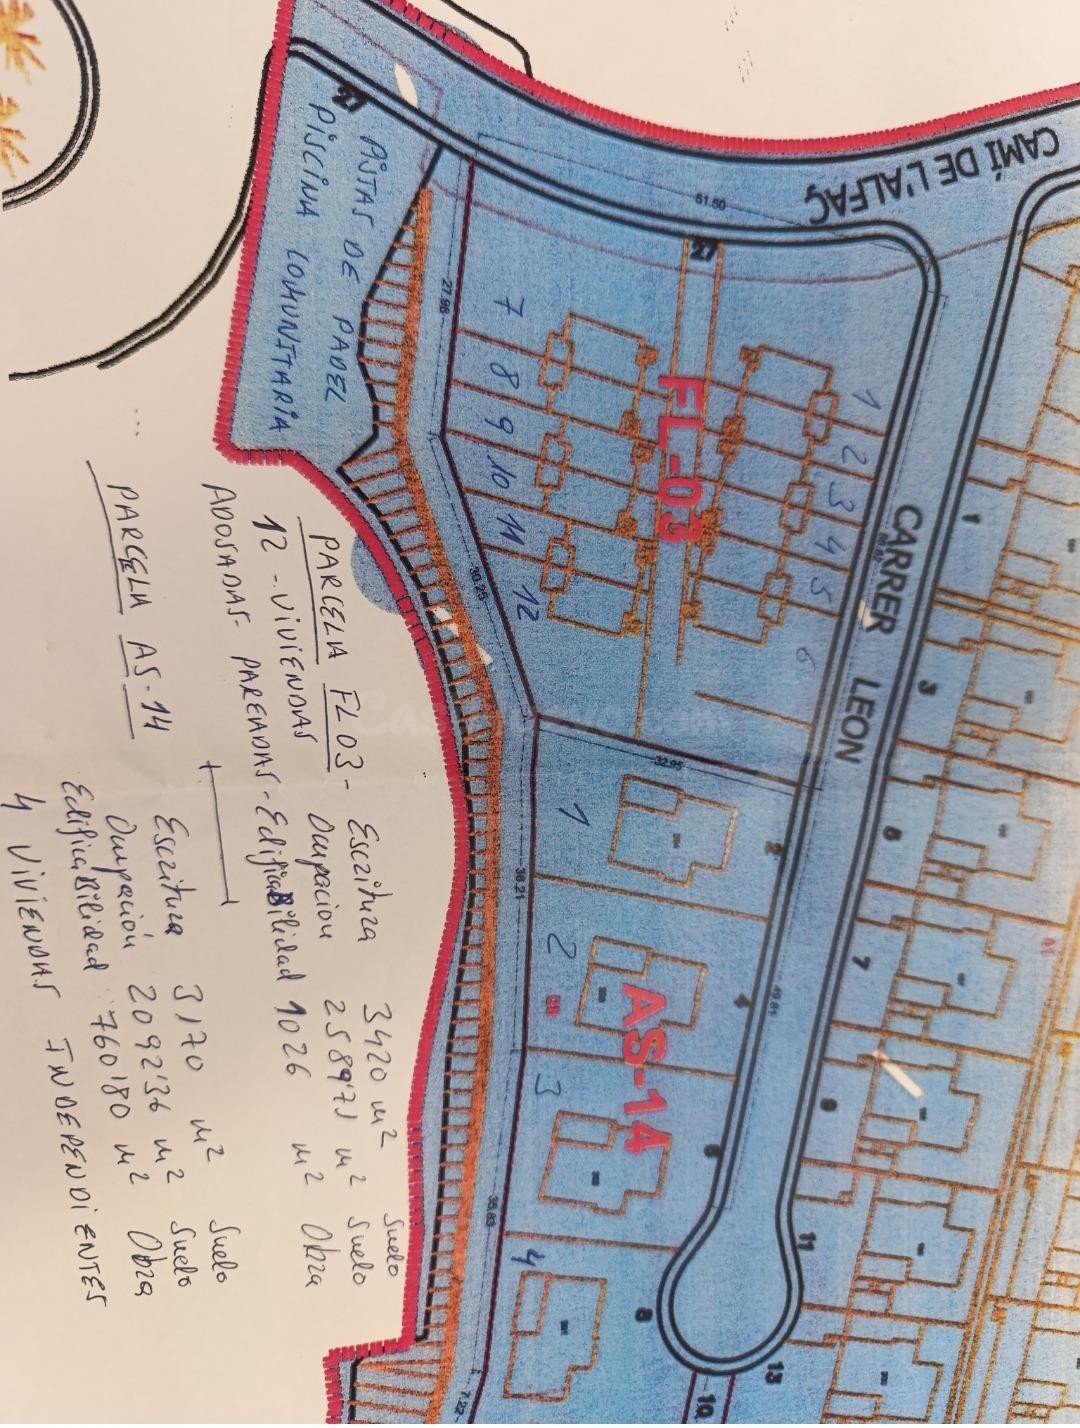 CAMÍ DE L'ALFAÇ
CARRER LEON
FL-03
AS-14
PISTAS DE PADEL
PISCINA COMUNITARIA
27
27
51.50
27.98
30.25
32.95
36.21
49.61
35.83
7.22
1
2
3
4
5
6
7
8
9
10
11
12
1
2
3
4
2
4
6
8
10
1
3
7
9
11
13
PARCELA FL03-
12 - VIVIENDAS
ADOSADAS- PAREADAS-
Escritura 3420 m² suelo
Ocupacion 2589'71 m² suelo
Edificabilidad 1026 m² Obra
PARCELA AS-14
Escritura 3170 m² suelo
Ocupación 2092'36 m² suelo
Edificabilidad: 760'80 m² Obra
4 VIVIENDAS INDEPENDIENTES